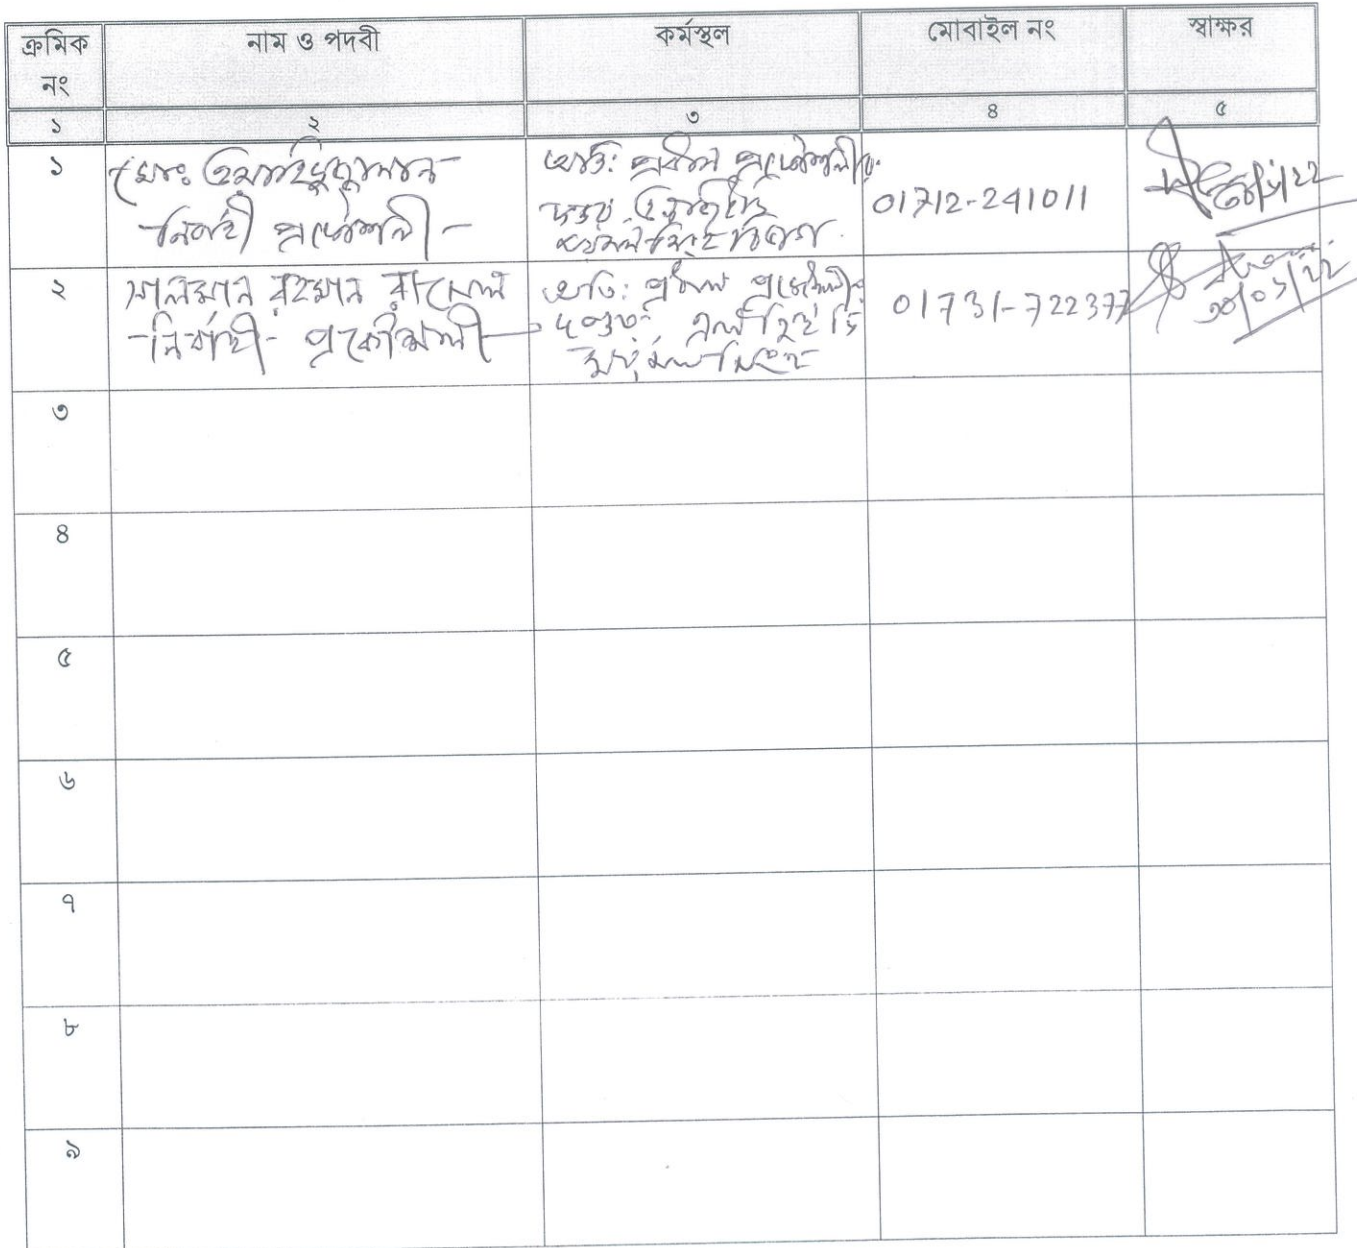 ক্রমিক নং
নাম ও পদবী
কর্মস্থল
মোবাইল নং
স্বাক্ষর
১
২
৩
৪
৫
১
মোঃ
নির্বাহী প্রকৌশলী
অতি: প্রধান প্রকৌশলীর
দপ্তর, এলজিইডি
ময়মনসিংহ বিভাগ.
01712-241011
২
সালমান রহমান রাসেল
নির্বাহী প্রকৌশলী
অতি: প্রধান প্রকৌশলীর
দপ্তর, এলজিইডি
ময়মনসিংহ
01731-722377
৩০/০৩/22
৩
৪
৫
৬
৭
৮
৯